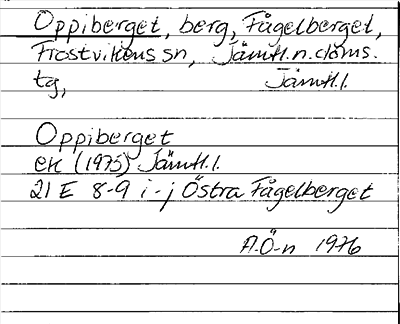 Oppiberget, berg, Fågelberget,
Frostvikens sn, Jämtl.n.doms.
tg, Jämtl.l.
Oppiberget
ek (1975) Jämtl.l.
21 E 8-9 i-j Östra Fågelberget
A.Ö-n 1976